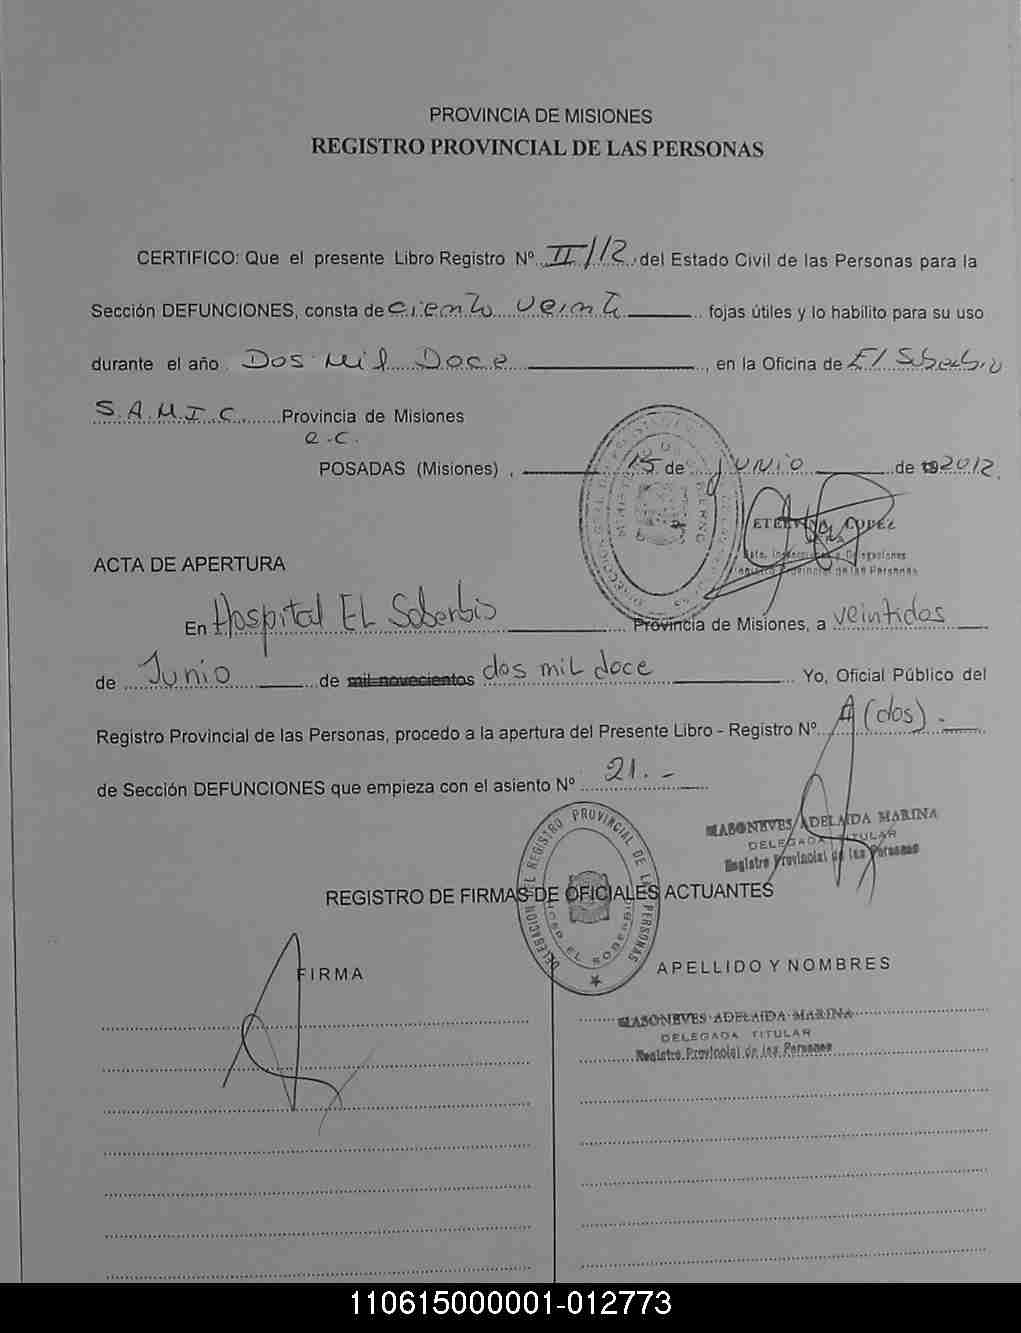 PROVINCIA DE MISIONES
REGISTRO PROVINCIAL DE LAS PERSONAS
CERTIFICO: Que el presente Libro Registro Nº II/12 del Estado Civil de las Personas para la
Sección DEFUNCIONES, consta de ciento veinte fojas útiles y lo habilito para su uso
durante el año Dos Mil Doce, en la Oficina de El Soberbio
S.A.M.I.C. Provincia de Misiones
e.c.
POSADAS (Misiones), 15 de JUNIO de 19 2012.
ETELVINA LOPEZ
Dpto. Inspecciones y Delegaciones
Registro Provincial de las Personas
ACTA DE APERTURA
En Hospital EL Soberbio Provincia de Misiones, a veintidos
de Junio de mil novecientos dos mil doce Yo, Oficial Público del
Registro Provincial de las Personas, procedo a la apertura del Presente Libro - Registro Nº II (dos).-
de Sección DEFUNCIONES que empieza con el asiento Nº 21.-
MASONEVES ADELAIDA MARINA
DELEGADA TITULAR
Registro Provincial de las Personas
DELEGACION DEL REGISTRO PROVINCIAL DE LAS PERSONAS
HOSP. EL SOBERBIO
REGISTRO DE FIRMAS DE OFICIALES ACTUANTES
FIRMA
APELLIDO Y NOMBRES
MASONEVES ADELAIDA MARINA
DELEGADA TITULAR
Registro Provincial de las Personas
110615000001-012773